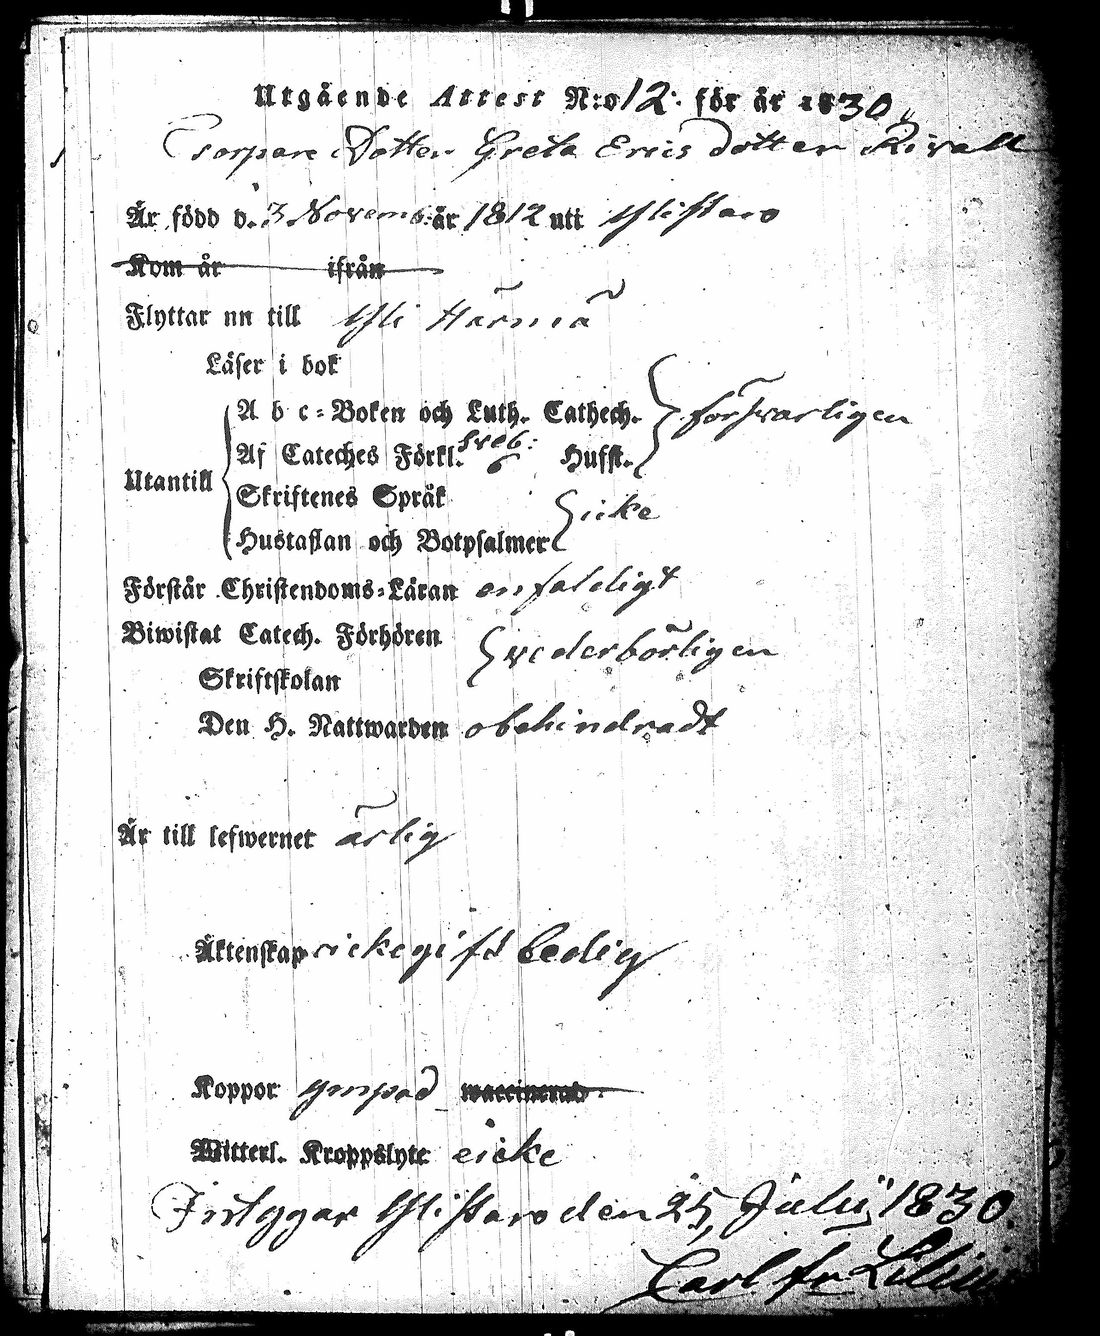 Utgående Attest N:o 12. för år 1830
Torpare Dotter Greta Ericsdotter Rivall
Är född d. 3 Novemb: år 1812 uti Ylistaro
Kom år ifrån
Flyttar nu till Yli Härmä
Läser i bok
A b c-Boken och Luth. Cathech. försvarligen
Af Cateches Förkl. Sveb: 6 Husst.
Utantill
Skriftenes Språk icke
Hustaflan och Botpsalmer
Förstår Christendoms-Läran enfaldigt
Biwistat Catech. Förhören vederbörligen
Skriftskolan
Den H. Nattwarden obehindradt
Är till lefwernet ärlig
Äktenskap icke gift ledig
Koppor ympad waccinerad
Witterl. Kroppslyte eicke
Intygar Ylistaro den 25 Julii 1830.
Carl Fr